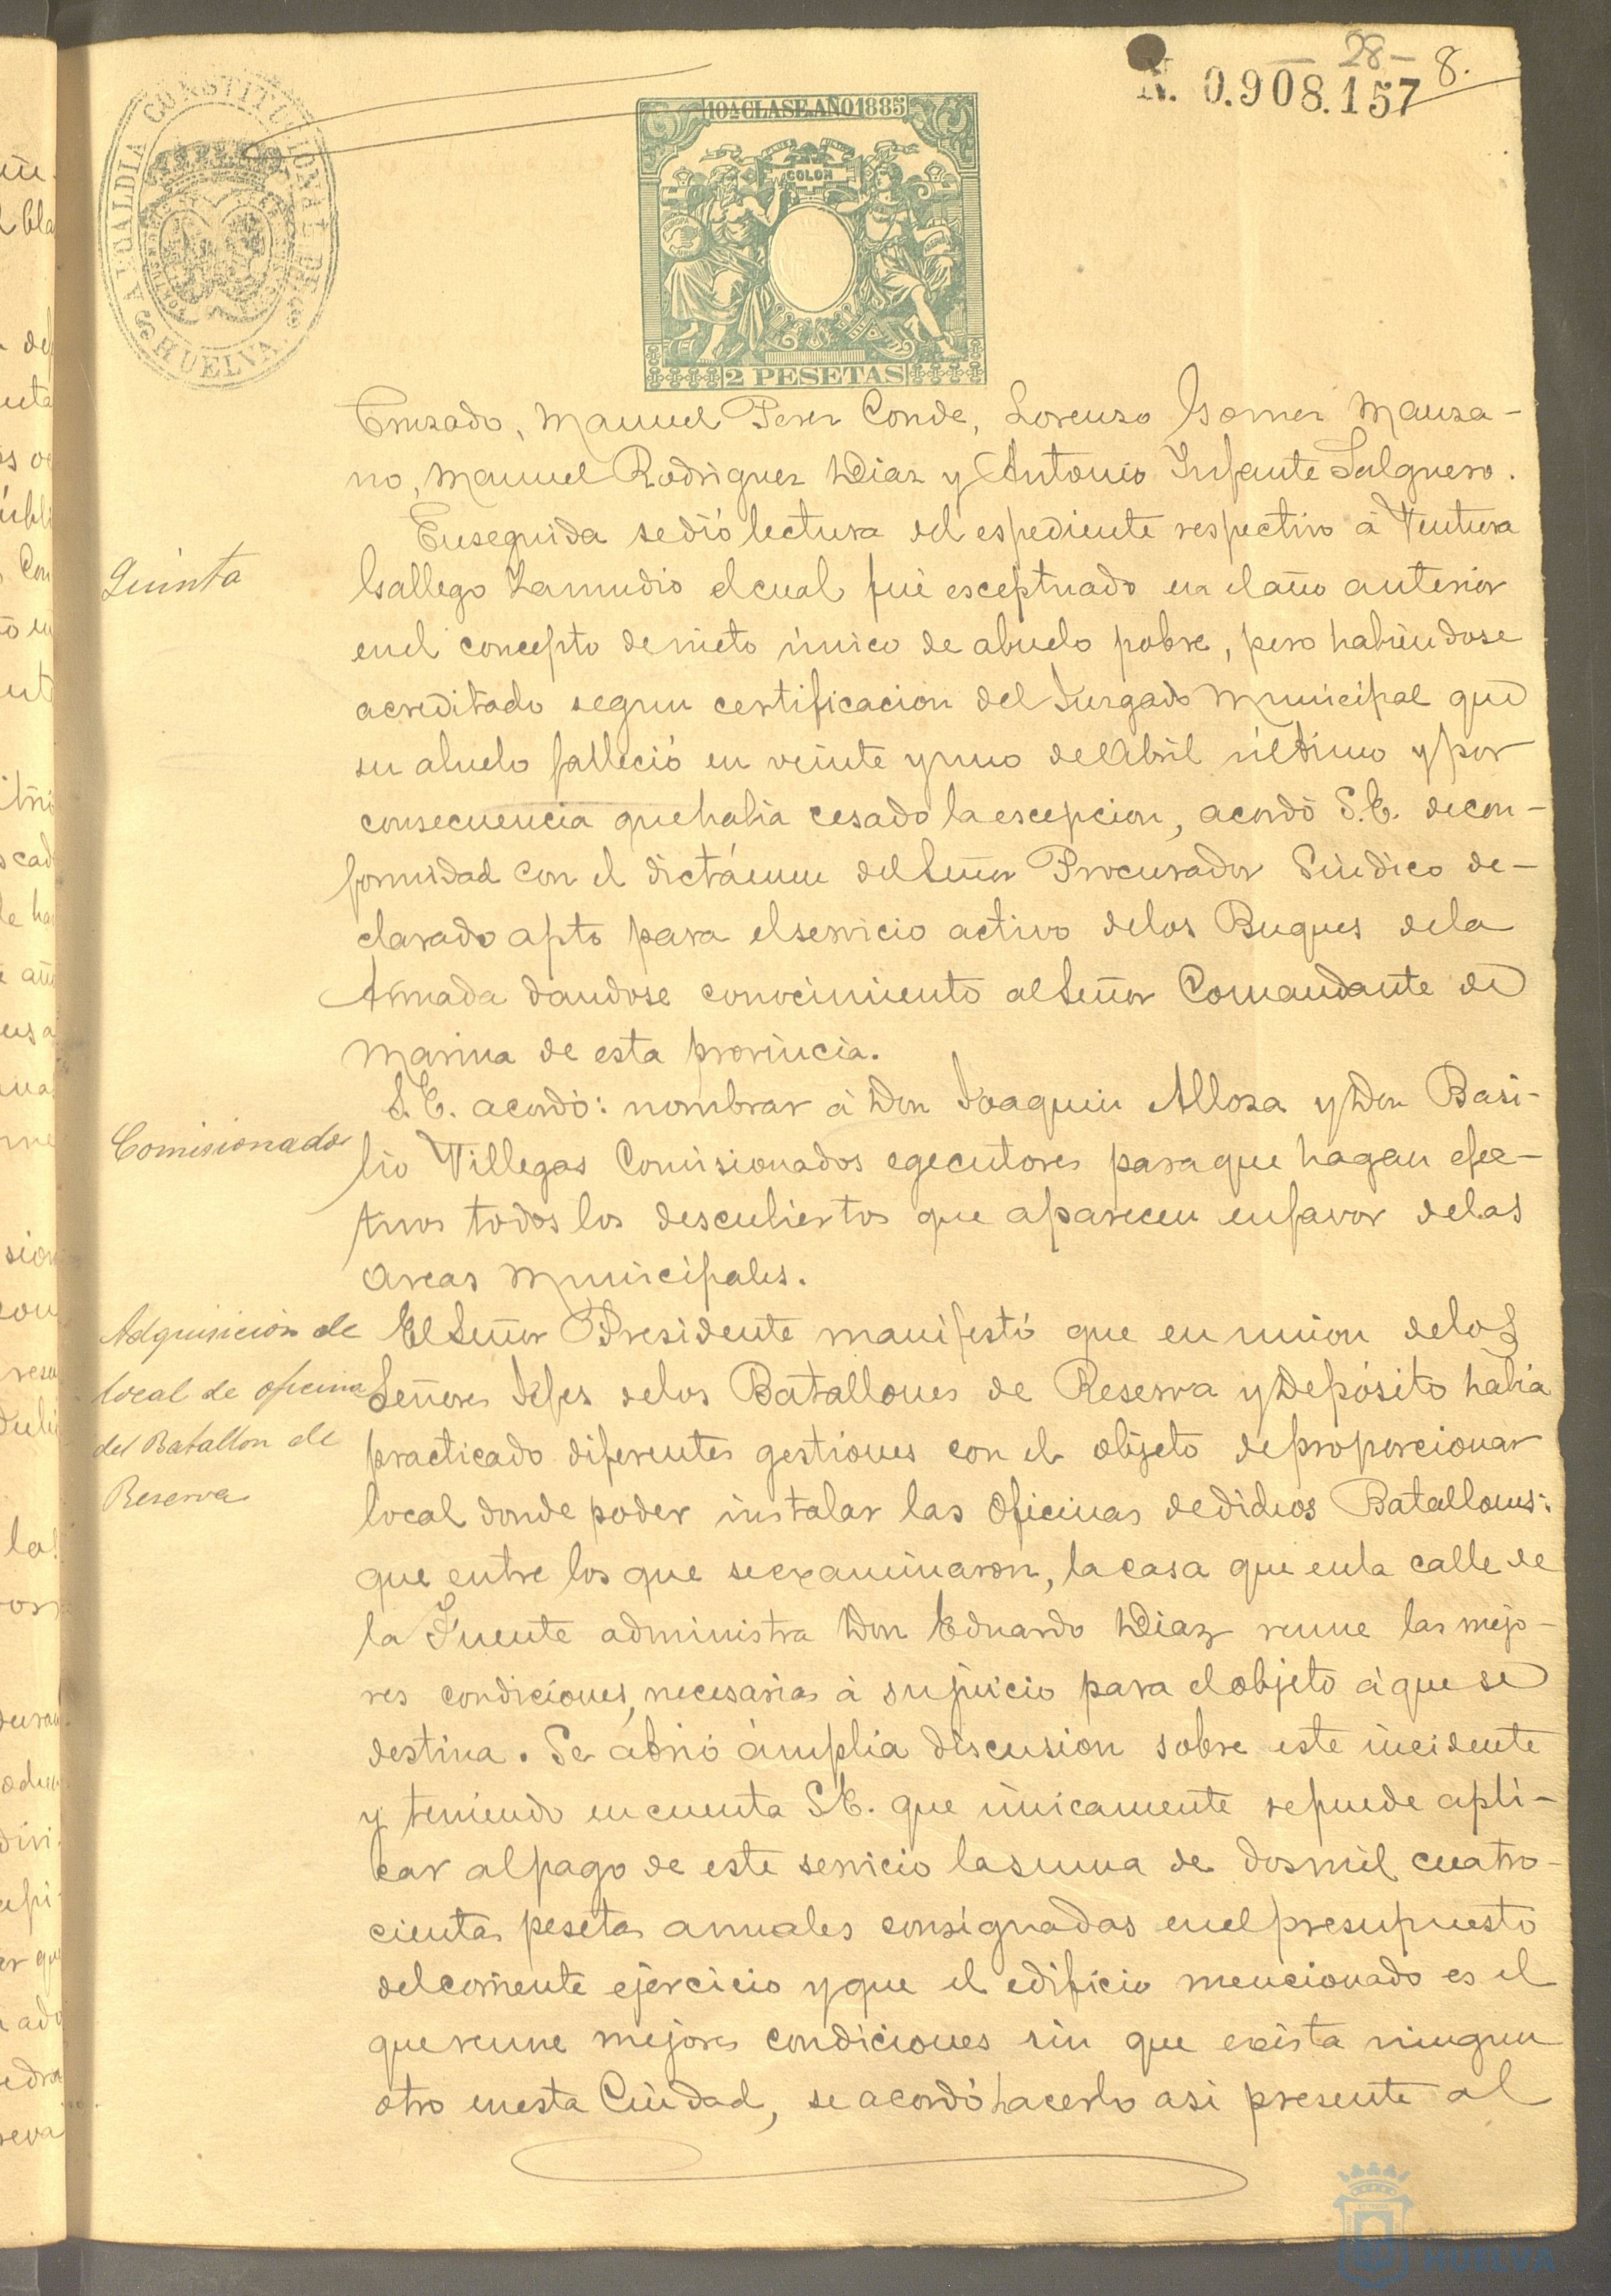 - 28 -
N. 0.908.157 8.
ALCALDIA CONSTITUCIONAL DE
HUELVA
10ª CLASE AÑO 1885
COLON
2 PESETAS
Cruzado, Manuel Perez Conde, Lorenzo Gomez Manza-
no, Manuel Rodriguez Diaz y Antonio Infante Salguero.
Quinta
Enseguida se dió lectura del espediente respectivo á Ventura
Gallego Zamudio el cual fué esceptuado en el año anterior
en el concepto de nieto único de abuelo pobre, pero habiendose
acreditado segun certificacion del Juzgado Municipal que
su abuelo falleció en veinte y uno de Abril último y por
consecuencia que habia cesado la escepcion, acordó S.E. de con-
formidad con el dictámen del Señor Procurador Sindico de-
clarado apto para el servicio activo de los Buques de la
Armada dandose conocimiento al Señor Comandante de
Marina de esta provincia.
Comisionado
S.E. acordó: nombrar á Don Joaquin Alloza y Don Basi-
lio Villegas Comisionados egecutores para que hagan efec-
tivos todos los descubiertos que aparecen en favor de las
arcas Municipales.
Adquisicion de
local de oficina
del Batallon de
Reserva
El Señor Presidente manifestó que en union de los
Señores Jefes de los Batallones de Reserva y Depósito habia
practicado diferentes gestiones con el objeto de proporcionar
local donde poder instalar las Oficinas de dichos Batallones:
que entre los que se examinaron, la casa que en la calle de
la Fuente administra Don Eduardo Diaz reune las mejo-
res condiciones, necesarias á su juicio para el objeto á que se
destina. Se abrió ámplia discusion sobre este incidente
y teniendo en cuenta S.E. que únicamente se puede apli-
car al pago de este servicio la suma de dos mil cuatro-
cientas pesetas anuales consignadas en el presupuesto
del corriente ejercicio y que el edificio mencionado es el
que reune mejores condiciones sin que exista ningun
otro en esta Ciudad, se acordó hacerlo asi presente al
HUELVA